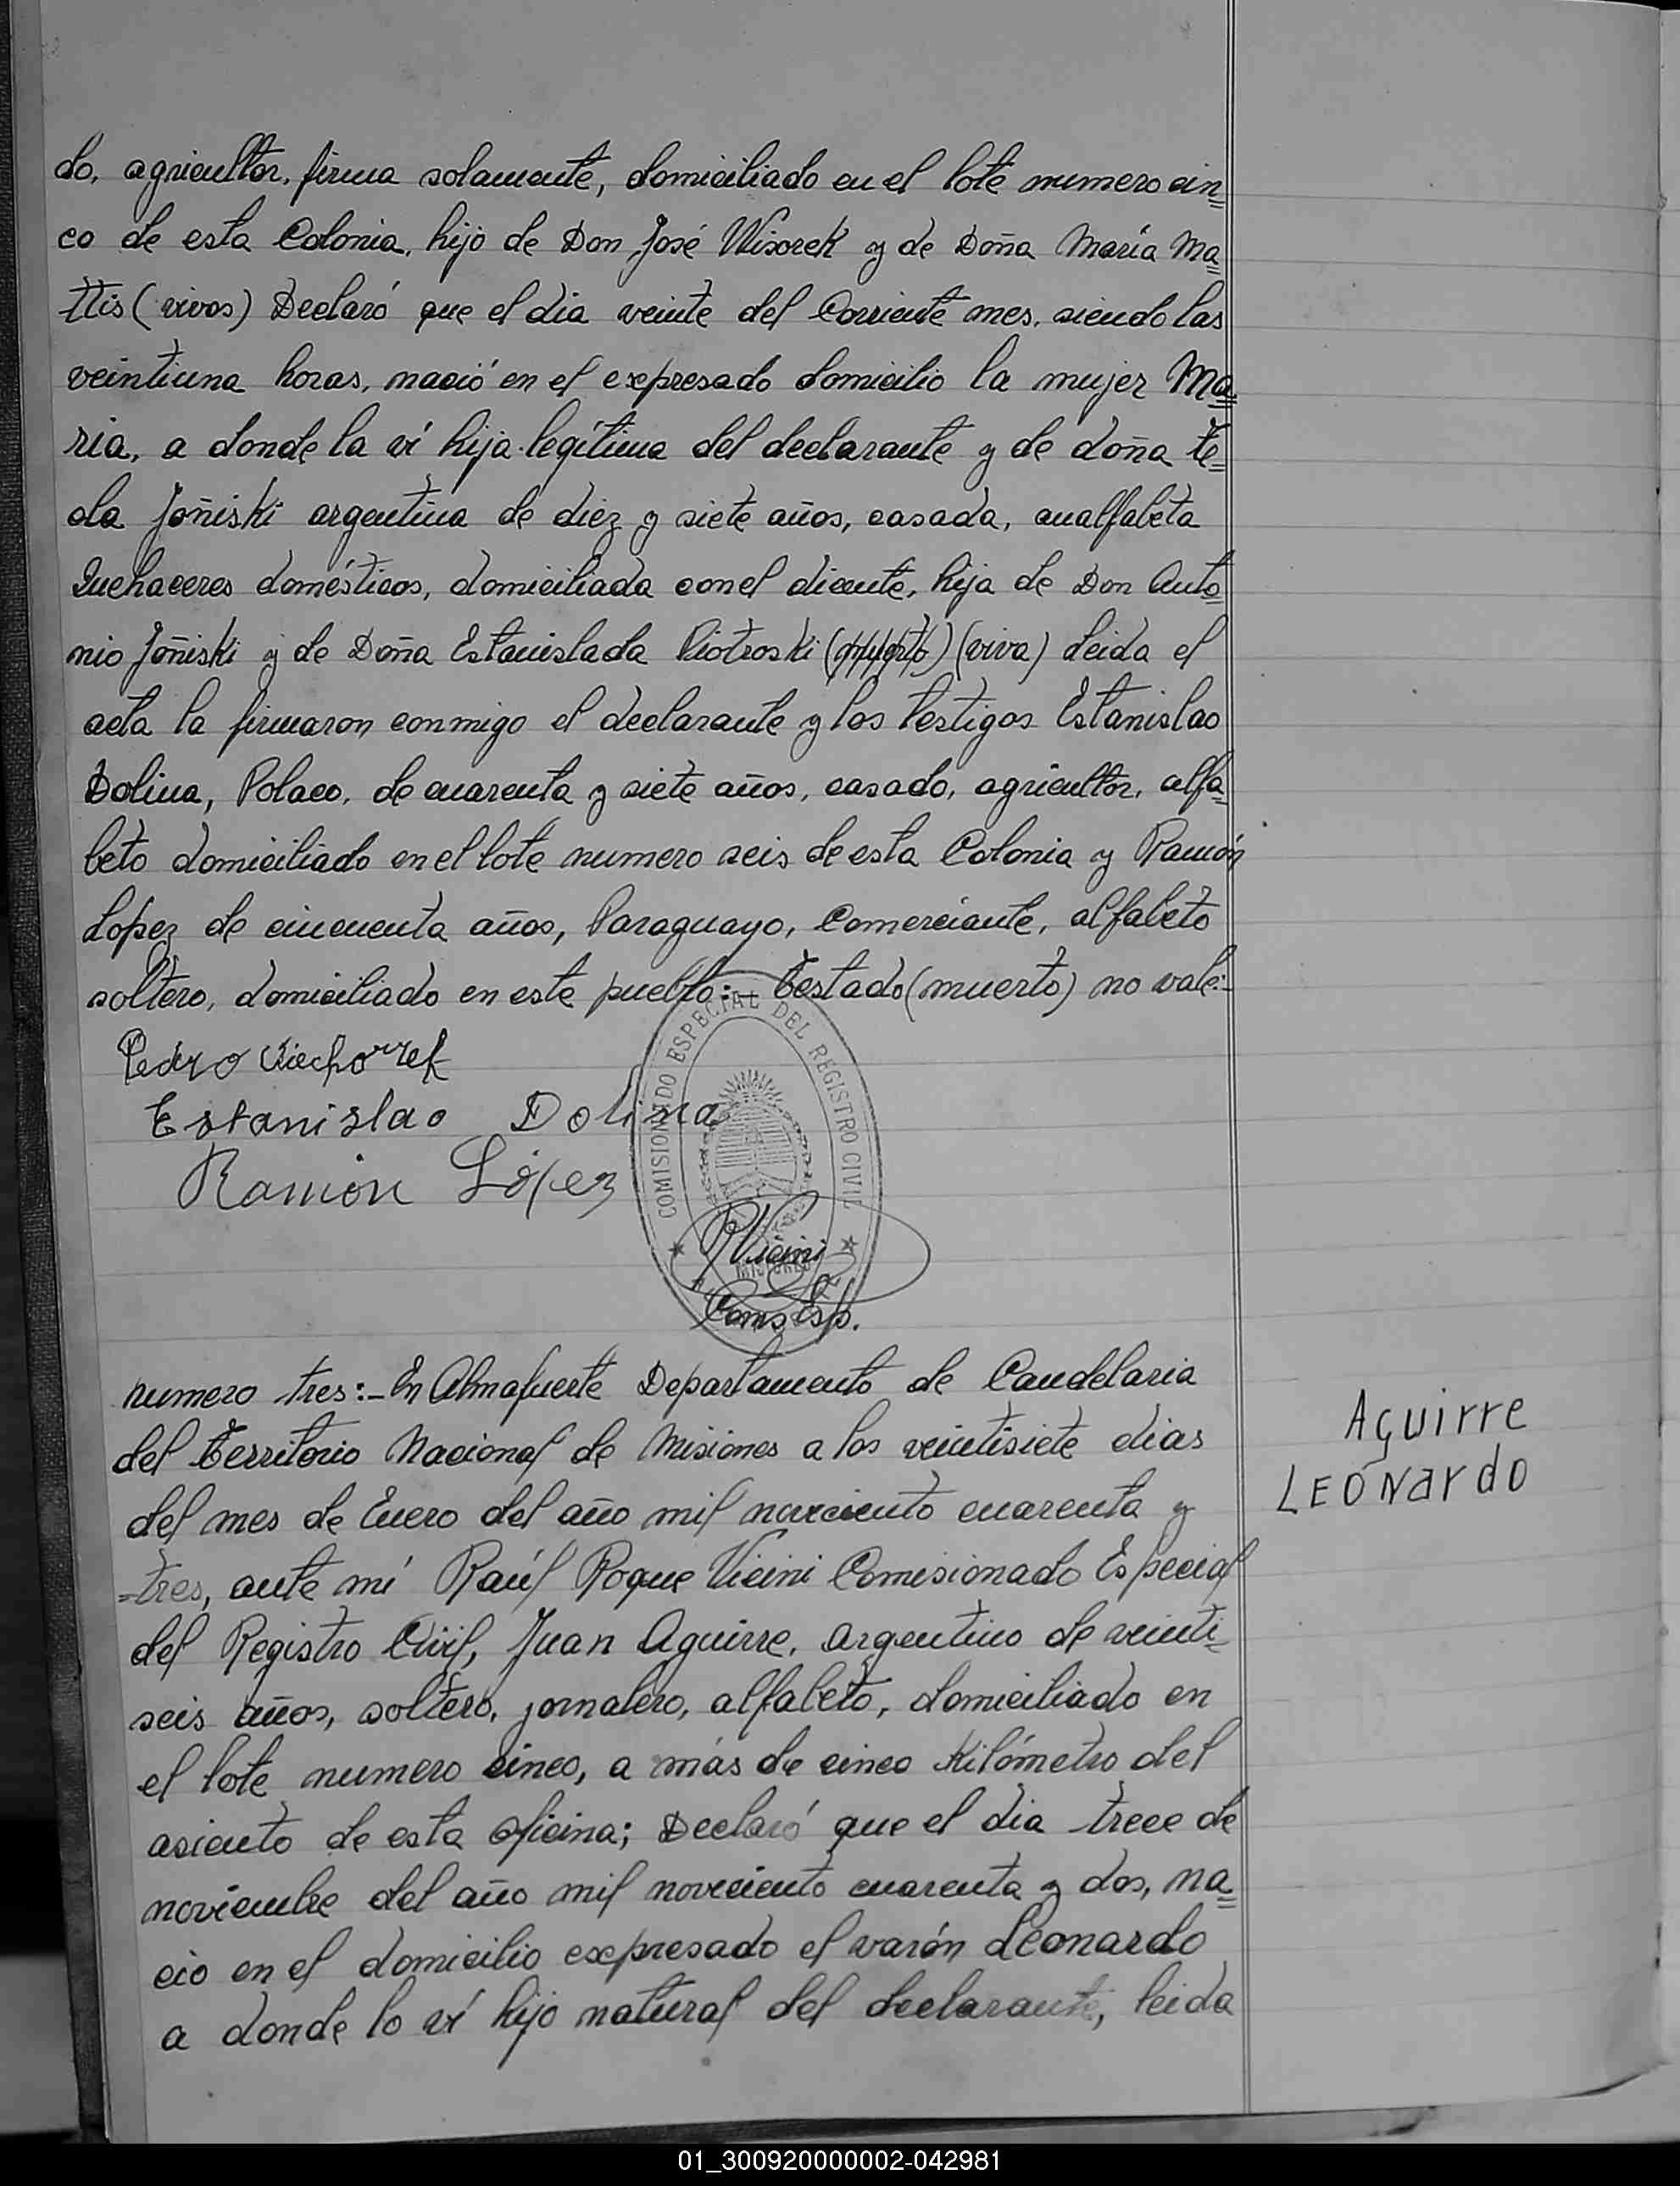 do, agricultor, firma solamente, domiciliado en el lote numero cin=
co de esta Colonia, hijo de Don José Wisorek y de Doña María Ma=
ttis (vivos) Declaró que el dia veinte del Corriente mes, siendo las
veintiuna horas, nació en el expresado domicilio la mujer Ma=
ria, a donde la ví hija legítima del declarante y de doña Te=
ola Joñiski argentina de diez y siete años, casada, analfabeta
Quehaceres domésticos, domiciliada con el dicente, hija de Don Anto=
nio Joñiski y de Doña Estanislada Piotroski (muerto) (viva) Leida el
acta la firmaron conmigo el declarante y los testigos Estanislao
Dolina, Polaco, de cuarenta y siete años, casado, agricultor, alfa=
beto domiciliado en el lote numero seis de esta Colonia y Ramón
Lopez de cincuenta años, Paraguayo, Comerciante, alfabeto
soltero, domiciliado en este pueblo:- Testado (muerto) no vale:-
Pedro Wiechorrek
Estanislao Dolina
Ramón López
COMISIONADO ESPECIAL DEL REGISTRO CIVIL
MISIONES
RVicini
Coms Esp.
numero tres:- En Almafuerte Departamento de Candelaria
del Territorio Nacional de Misiones a los veintisiete dias
del mes de Enero del año mil noveciento cuarenta y
tres, ante mí Raúl Roque Vicini Comisionado Especial
del Registro Civil, Juan Aguirre, argentino de veinti=
seis años, soltero, jornalero, alfabeto, domiciliado en
el lote numero cinco, a más de cinco Kilómetro del
asiento de esta oficina; Declaró que el dia trece de
noviembre del año mil noveciento cuarenta y dos, na=
cio en el domicilio expresado el varón Leonardo
a donde lo ví hijo natural del declarante, leida
Aguirre
LEONardo
01_300920000002-042981